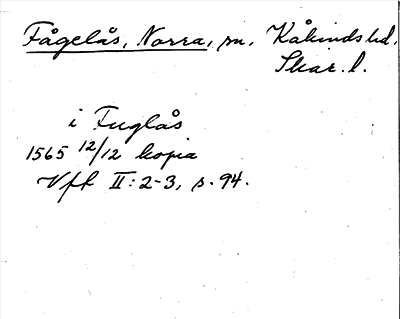 Fågelås, Norra, sn. Kåkinds hd.
Skar. l.
i Fuglås
1565 12/12 kopia
Vfl II: 2-3, s. 94.